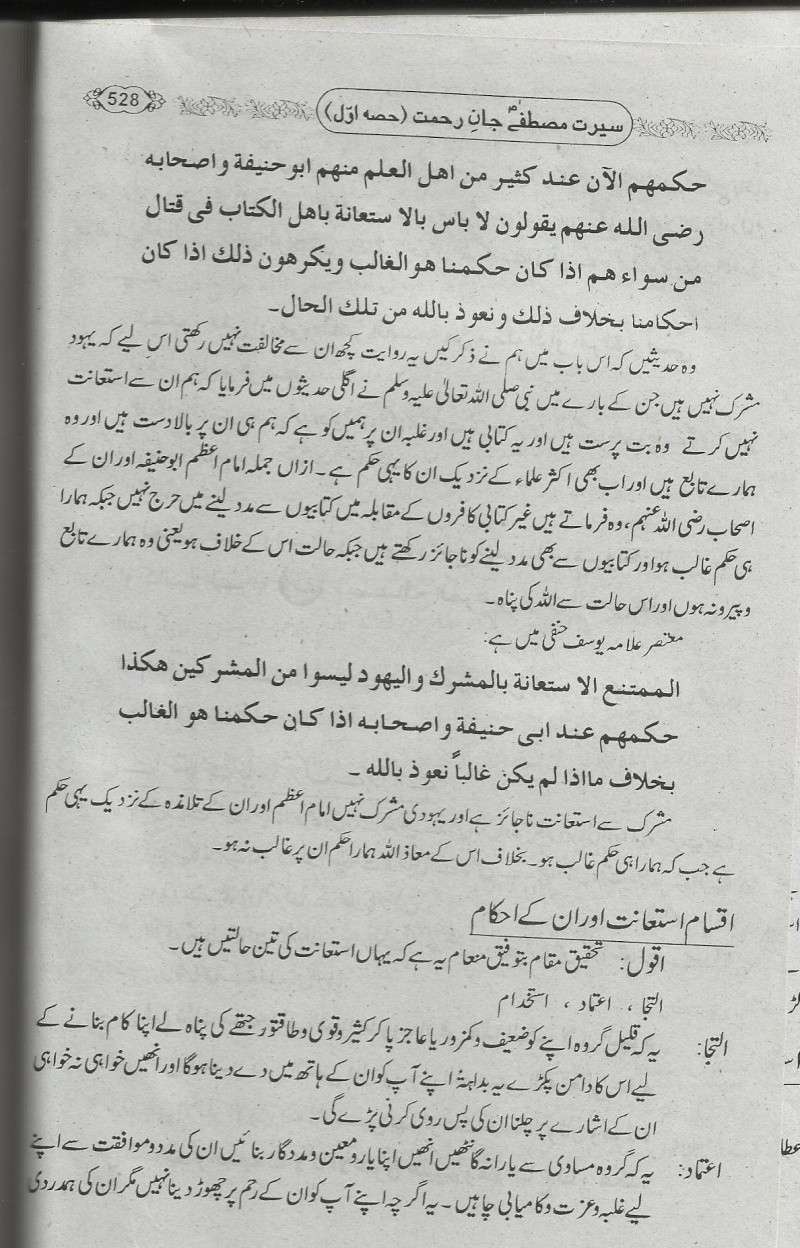 528
سیرت مصطفےٰ جانِ رحمت (حصہ اوّل)
حكمهم الآن عند كثير من اهل العلم منهم ابو حنيفة و اصحابه
رضى الله عنهم يقولون لا باس بالا ستعانة باهل الكتاب فى قتال
من سواء هم اذا كان حكمنا هو الغالب ويكرهون ذلك اذا كان
احكامنا بخلاف ذلك و نعوذ بالله من تلك الحال۔
وہ حدیثیں کہ اس باب میں ہم نے ذکر کیں یہ روایت کچھ ان سے مخالفت نہیں رکھتی اس لیے کہ یہود
مشرک نہیں ہیں جن کے بارے میں نبی صلی اللہ تعالیٰ علیہ وسلم نے اگلی حدیثوں میں فرمایا کہ ہم ان سے استعانت
نہیں کرتے وہ بت پرست ہیں اور یہ کتابی ہیں اور غلبہ ان پر ہمیں کو ہے کہ ہم ہی ان پر بالا دست ہیں اور وہ
ہمارے تابع ہیں اور اب بھی اکثر علماء کے نزدیک ان کا یہی حکم ہے۔ ازاں جملہ امام اعظم ابو حنیفہ اور ان کے
اصحاب رضی اللہ عنہم، وہ فرماتے ہیں غیر کتابی کافروں کے مقابلہ میں کتابیوں سے مدد لینے میں حرج نہیں جبکہ ہمارا
ہی حکم غالب ہو اور کتابیوں سے بھی مدد لینے کو ناجائز رکھتے ہیں جبکہ حالت اس کے خلاف ہو یعنی وہ ہمارے تابع
و پیرو نہ ہوں اور اس حالت سے اللہ کی پناہ۔
معتصر علامہ یوسف حنفی میں ہے:
الممتنع الا ستعانة بالمشرك واليهود ليسوا من المشركين هكذا
حكمهم عند ابى حنيفة و اصحابه اذا كان حكمنا هو الغالب
بخلاف مااذا لم يكن غالباً نعوذ بالله ۔
مشرک سے استعانت ناجائز ہے اور یہودی مشرک نہیں امام اعظم اور ان کے تلامذہ کے نزدیک یہی حکم
ہے جب کہ ہمارا ہی حکم غالب ہو۔ بخلاف اس کے معاذ اللہ ہمارا حکم ان پر غالب نہ ہو۔
اقسام استعانت اور ان کے احکام
اقول: تحقیق مقام بتوفیق منعام یہ ہے کہ یہاں استعانت کی تین حالتیں ہیں۔
التجا ، اعتماد ، استخدام
التجا: یہ کہ قلیل گروہ اپنے کو ضعیف و کمزور یا عاجز پاکر کثیر و قوی و طاقتور جتھے کی پناہ لے اپنا کام بنانے کے
لیے اس کا دامن پکڑے یہ بداہۃً اپنے آپ کو ان کے ہاتھ میں دے دینا ہوگا اور انھیں خواہی نہ خواہی
ان کے اشارے پر چلنا ان کی پس روی کرنی پڑے گی۔
اعتماد: یہ کہ گروہ مساوی سے یارانہ گانٹھیں انھیں اپنا یار و معین و مددگار بنائیں ان کی مدد و موافقت سے اپنے
لیے غلبہ و عزت و کامیابی چاہیں۔ یہ اگرچہ اپنے آپ کو ان کے رحم پر چھوڑ دینا نہیں مگر ان کی ہمدردی